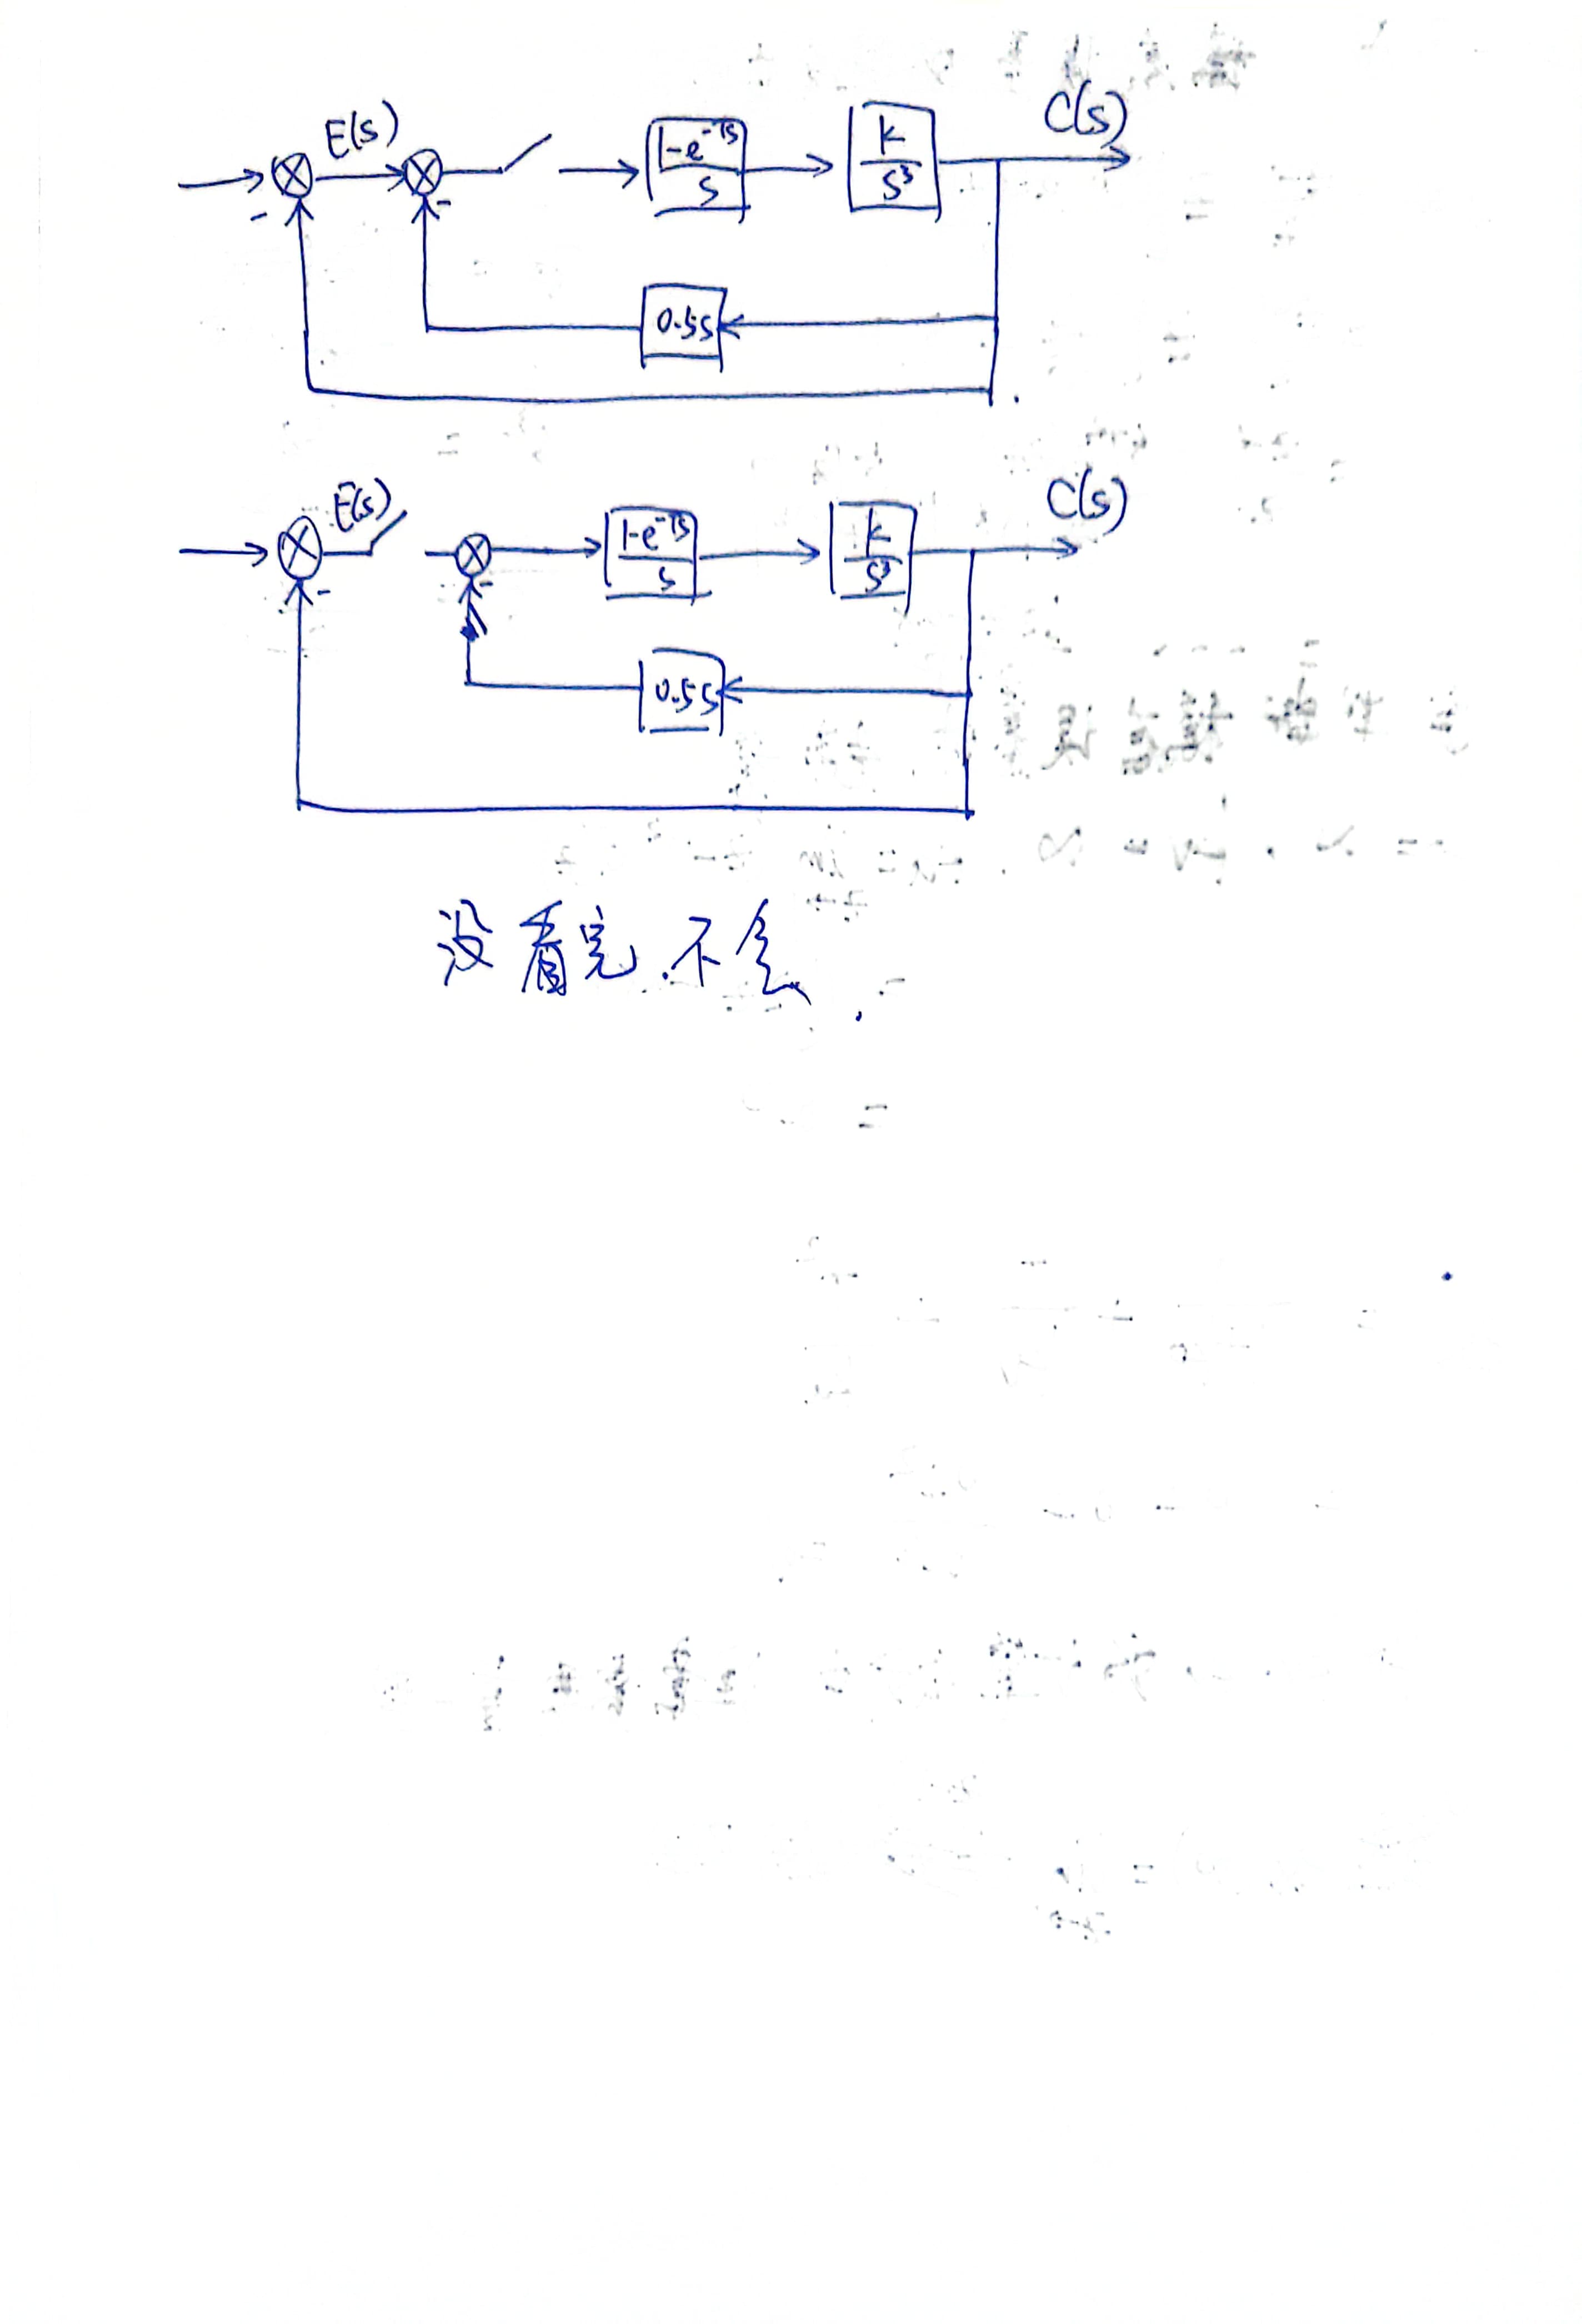 E(s) 1-e^-Ts/s k/s³ C(s)
0.5s
E(s) 1-e^-Ts/s k/s³ C(s)
0.5s
没看完.不会.